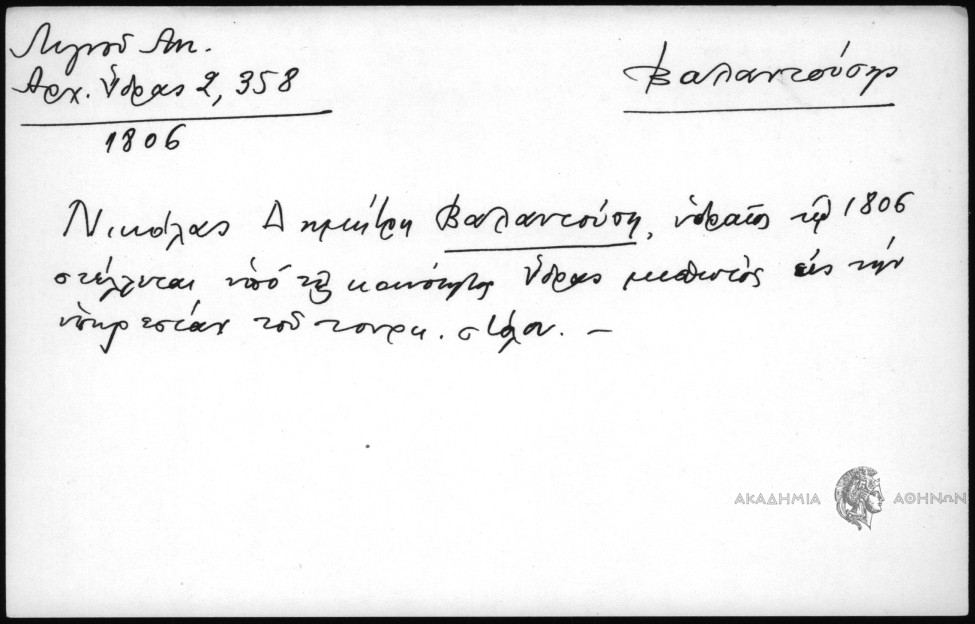 Λιγνοῦ Αν.
Ἀρχ. Ὕδρας 2, 358
1806
Βαλαντούσης
Νικόλας Δημήτρη Βαλαντούση, ὑδραῖος τῷ 1806
στέλνεται ὑπό τῆς κοινότητος Ὕδρας μισθωτὸς εἰς τὴν
ὑπηρεσίαν τοῦ τουρκ. στόλου. —
ΑΚΑΔΗΜΙΑ ΑΘΗΝΩΝ